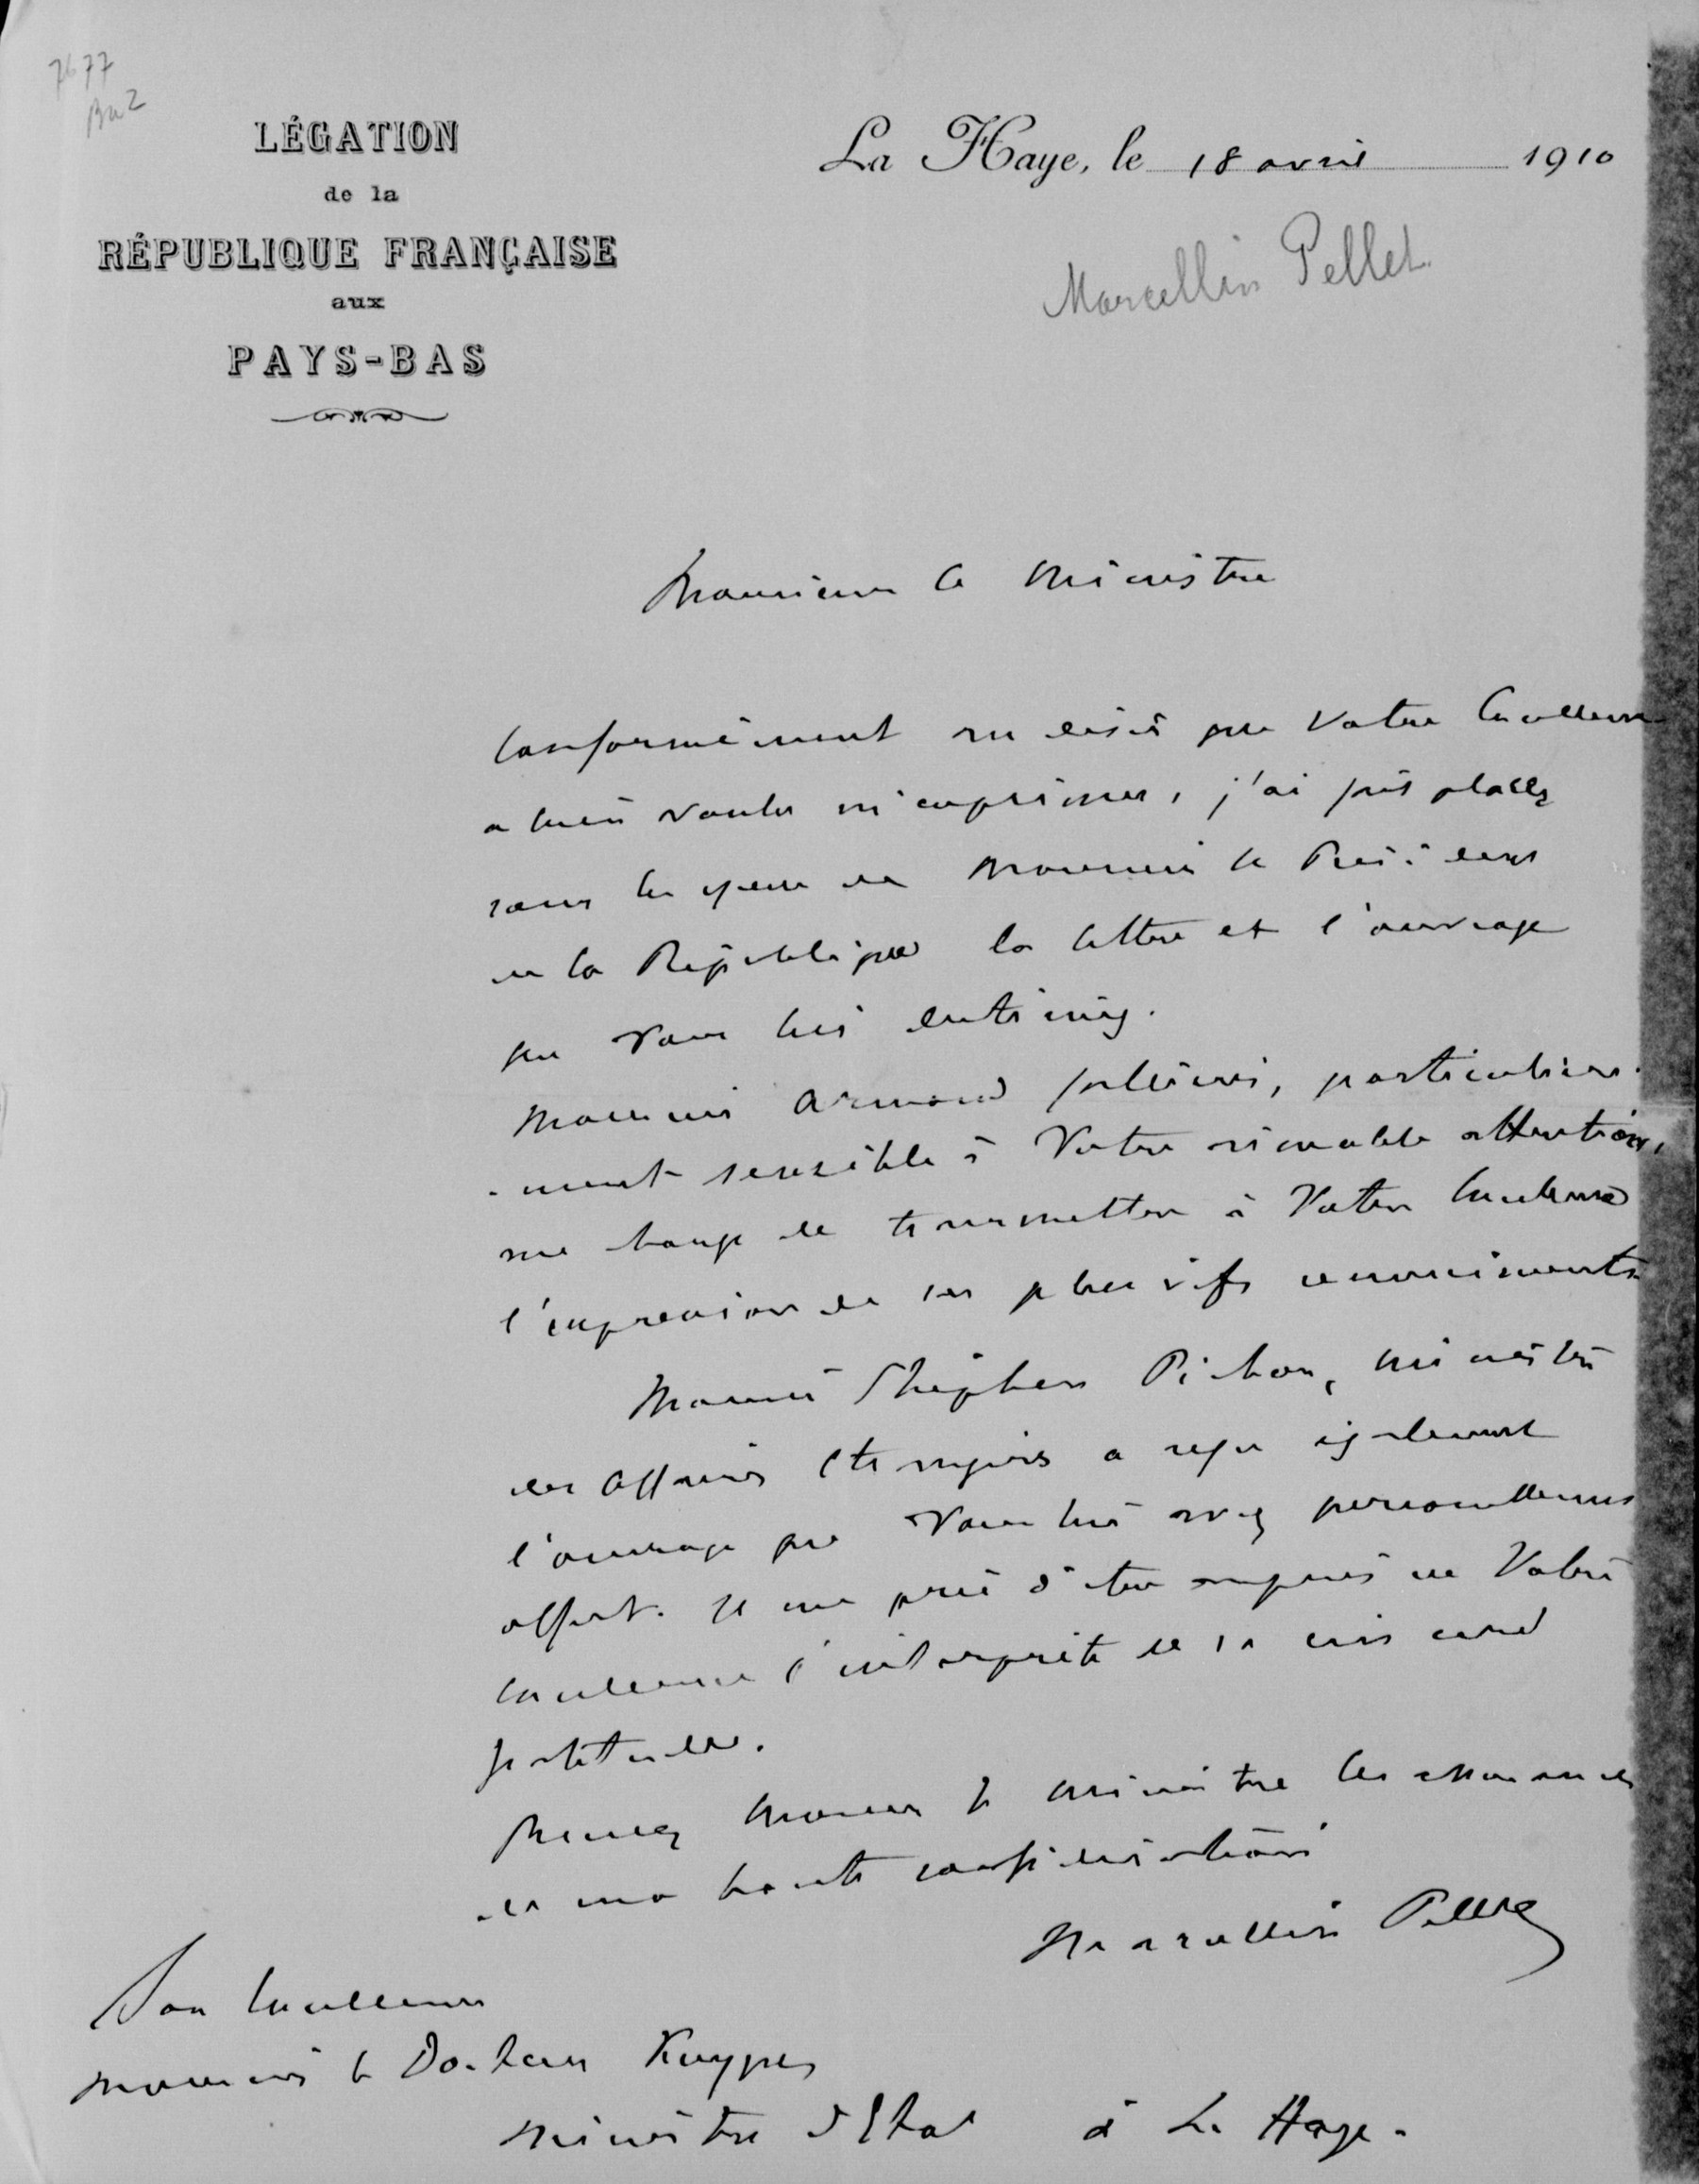 7677
LÉGATION
de la
RÉPUBLIQUE FRANÇAISE
aux
PAYS-BAS
La Haye, le 18 avril 1910
Marcellin Pellet
Monsieur le Ministre
Conformément au désir que Votre Excellence
a bien voulu m'exprimer, j'ai fait placer
sous les yeux de Monsieur le Président
de la République la lettre et l'ouvrage
que vous lui destiniez.
Monsieur Armand Fallières, particulière-
-ment sensible à Votre aimable attention,
me charge de transmettre à Votre Excellence
l'expression de ses plus vifs remerciments
Monsieur Stephen Pichon, Ministre
des Affaires Etrangères a reçu également
l'ouvrage que Vous lui avez personnellement
offert. Il me prie d'être auprès de Votre
Excellence l'interprète de sa sincère
gratitude.
Agréez Monsieur le Ministre les assurances
de ma haute considération
Marcellin Pellet
Son Excellence
Monsieur le Docteur Kuyper
Ministre d'Etat à La Haye.